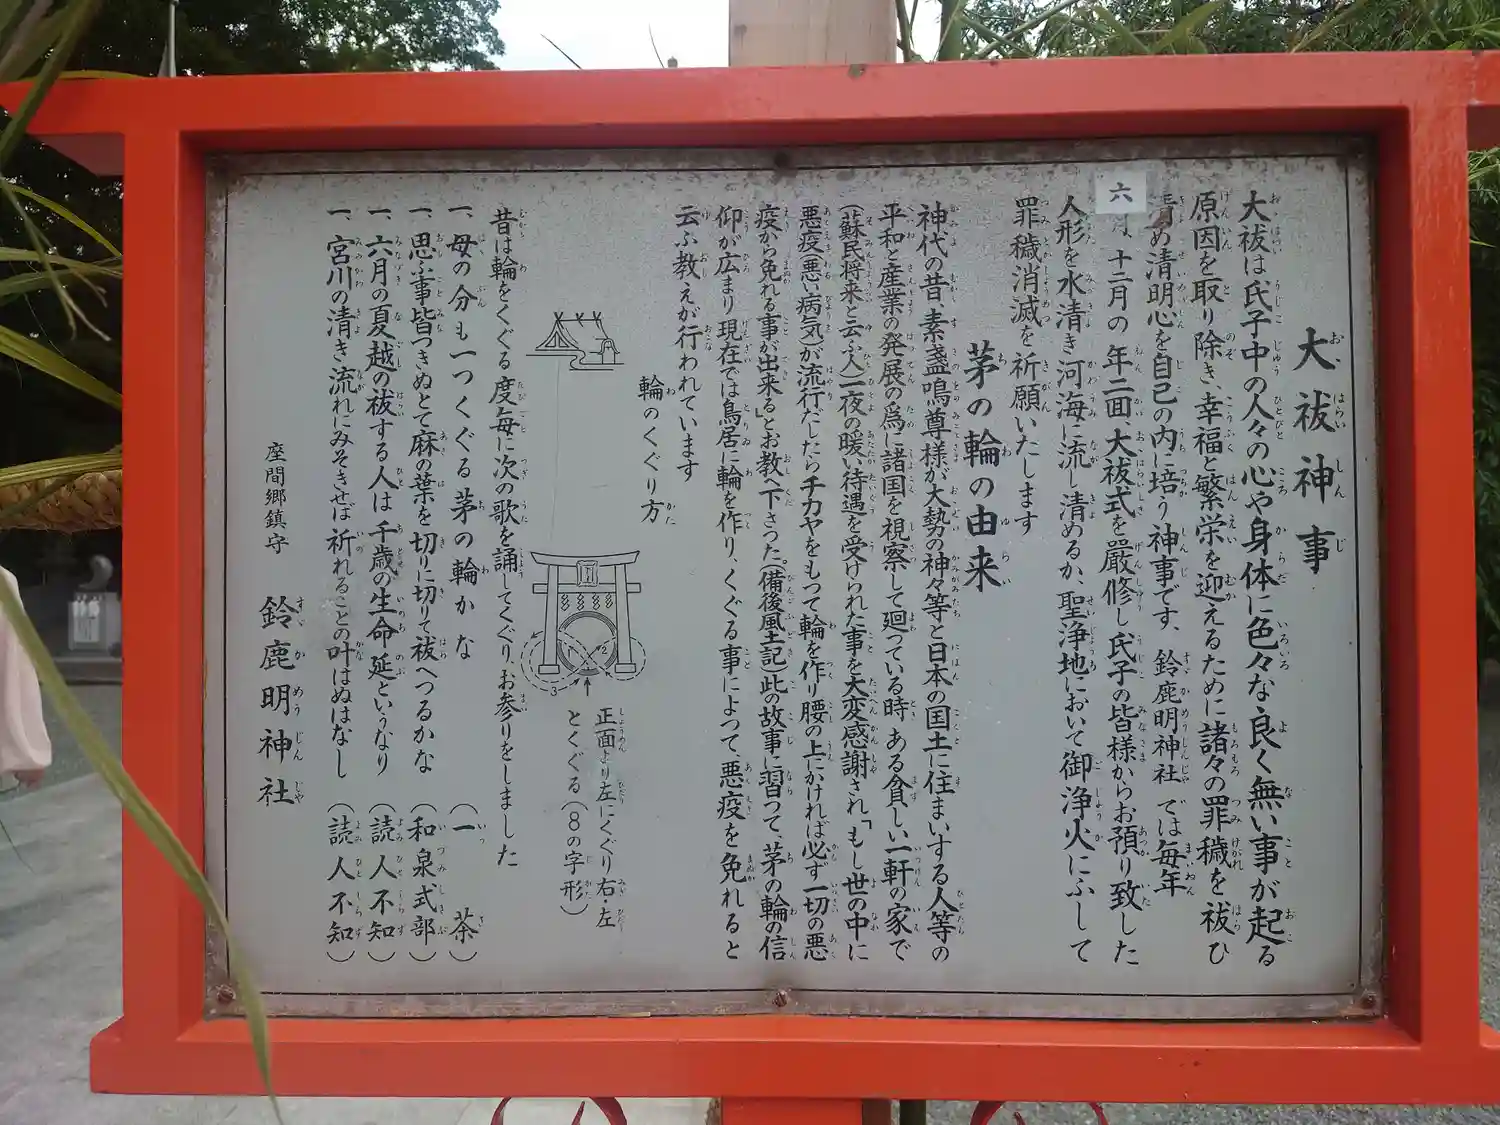 大祓神事
大祓は氏子中の人々の心や身体に色々な良く無い事が起る
原因を取り除き、幸福と繁栄を迎えるために諸々の罪穢を祓ひ
清め清明心を自己の内に培う神事です、鈴鹿明神社では毎年
六月、十二月の年二回、大祓式を厳修し氏子の皆様からお預り致した
人形を水清き河海に流し清めるか、聖浄地において御浄火にふして
罪穢消滅を祈願いたします
茅の輪の由来
神代の昔、素盞鳴尊様が大勢の神々等と日本の国土に住まいする人等の
平和と産業の発展の為に諸国を視察して廻っている時、ある貧しい一軒の家で
(蘇民将来と云ふ人)一夜の暖い待遇を受けられた事を大変感謝され「もし世の中に
悪疫(悪い病気)が流行だしたらチカヤをもって輪を作り腰の上にかければ必ず一切の悪
疫から免れる事が出来る」とお教へ下さった。(備後風土記)此の故事に習つて、茅の輪の信
仰が広まり現在では鳥居に輪を作り、くぐる事によって、悪疫を免れると
云ふ教えが行われています
輪のくぐり方
正面より左にくぐり右・左
とくぐる(8の字形)
昔は輪をくぐる度毎に次の歌を誦してくぐり、お参りをしました
一、母の分も一つくぐる茅の輪かな (一茶)
一、思ふ事皆つきぬとて麻の葉を切りに切りて祓へつるかな (和泉式部)
一、六月の夏越の祓する人は千歳の生命延というなり (読人不知)
一、宮川の清き流れにみそきせば祈れることの叶はぬはなし (読人不知)
座間郷鎮守 鈴鹿明神社